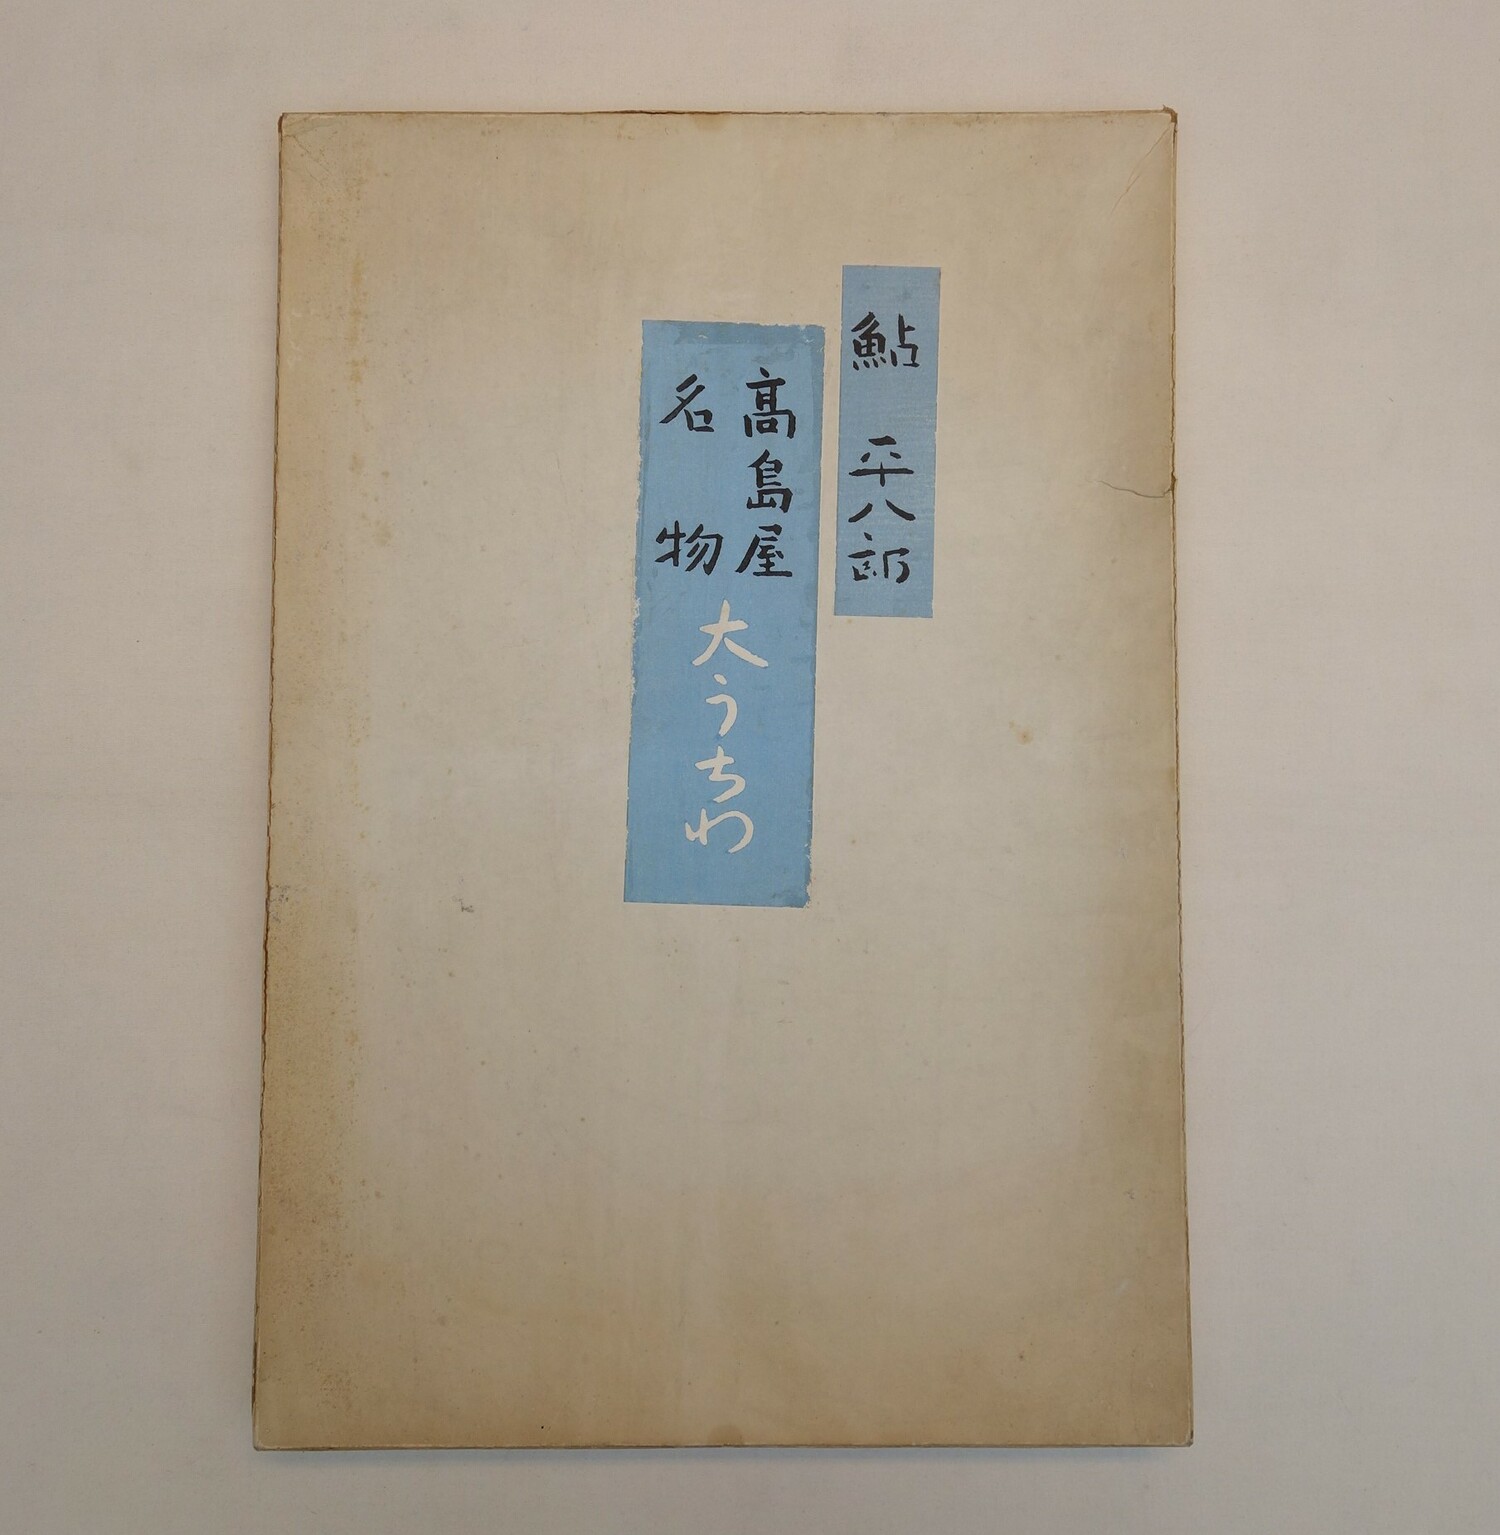 鮎 平八郎
髙島屋
名物
大うちわ